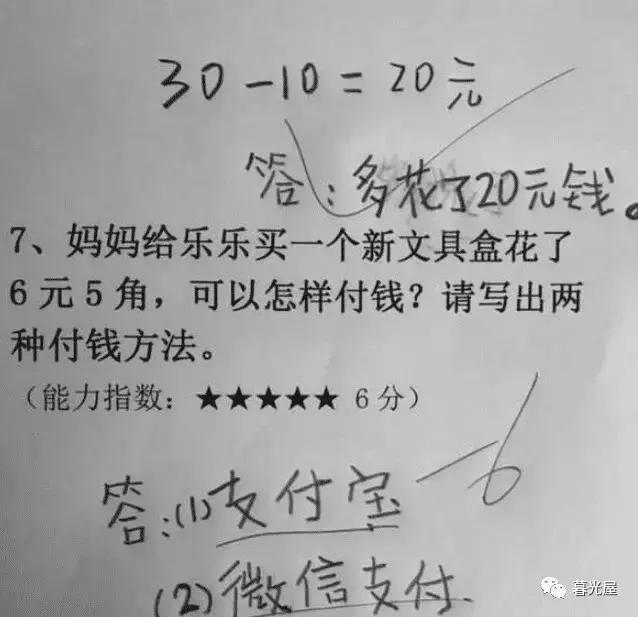 30-10=20元
答:多花了20元钱。
7、妈妈给乐乐买一个新文具盒花了
6元5角，可以怎样付钱？请写出两
种付钱方法。
（能力指数：★★★★★ 6分）
-6
答:(1)支付宝
(2)微信支付.
暮光屋